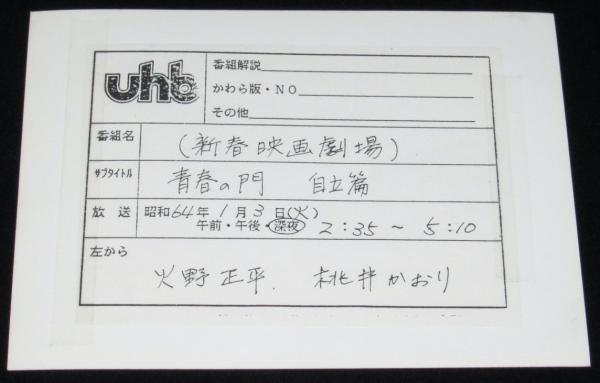 uhb
番組解説
かわら版・NO
その他
番組名 (新春映画劇場)
サブタイトル 青春の門 自立篇
放送 昭和64年1月3日(火)
午前・午後・深夜 2:35 ~ 5:10
左から
火野正平. 桃井かおり